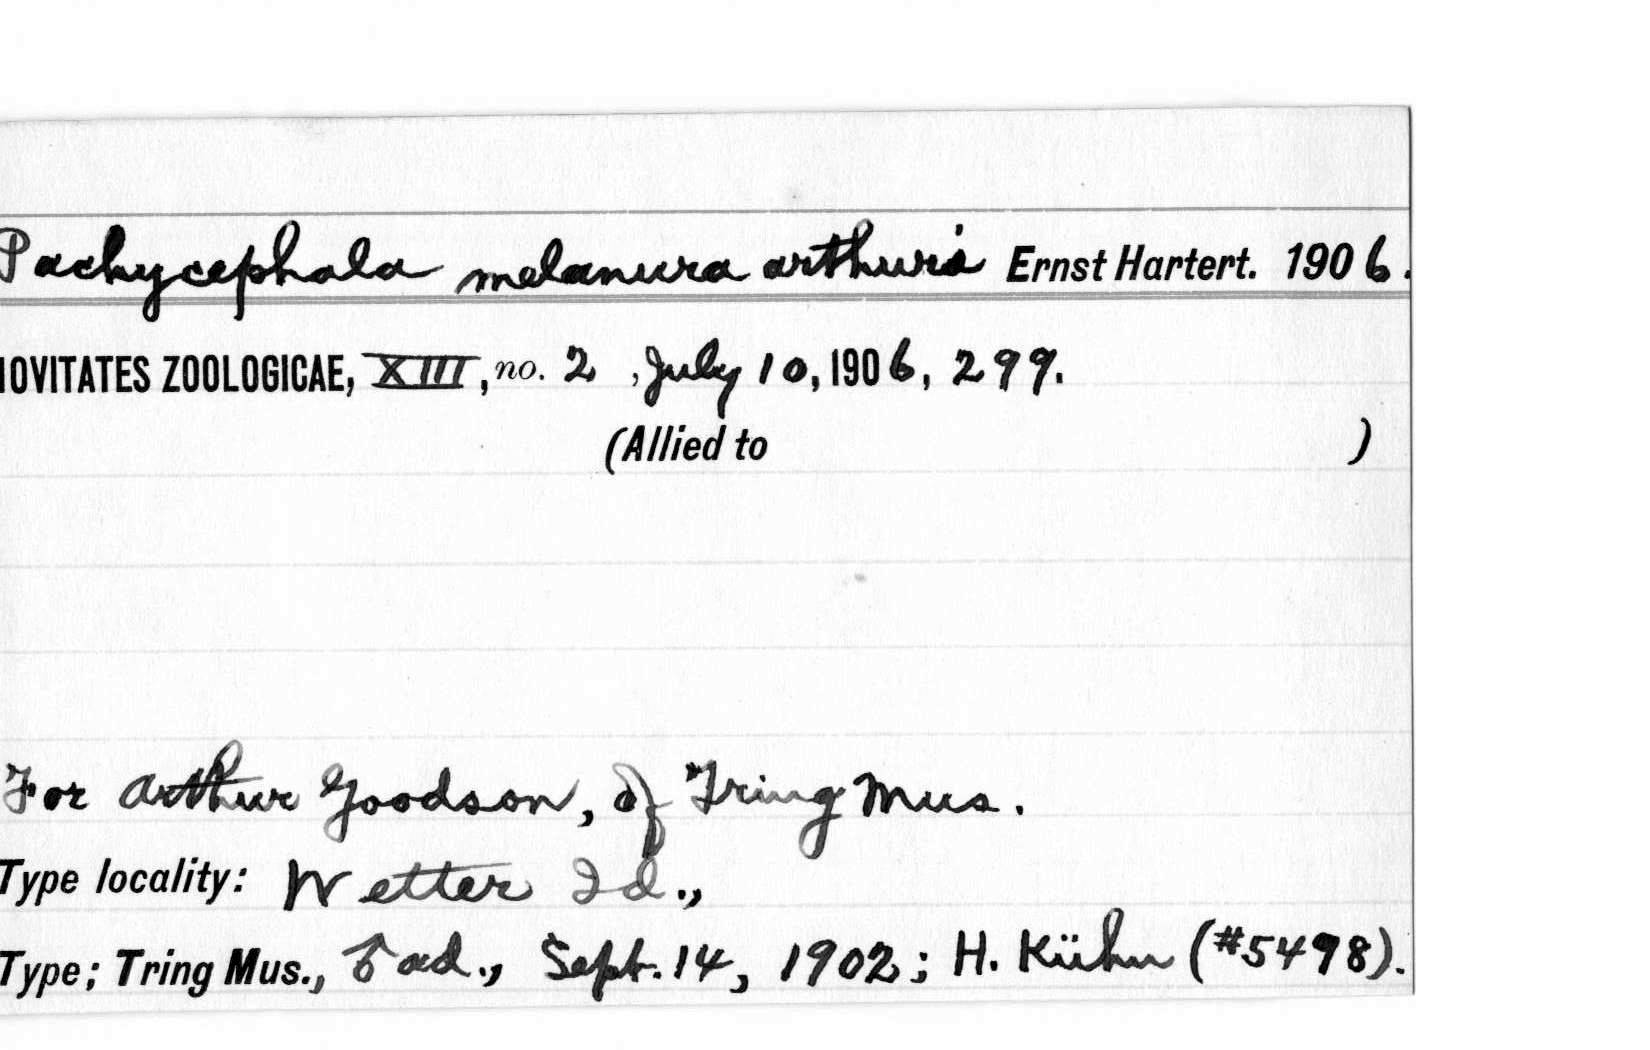 Pachycephala melanura arthuri Ernst Hartert. 1906.
IOVITATES ZOOLOGICAE, XIII, no. 2, July 10, 1906, 299.
(Allied to )
For Arthur Goodson, of Tring Mus.
Type locality: Wetter Id.,
Type; Tring Mus., ♂ ad., Sept. 14, 1902; H. Kühn (#5498).